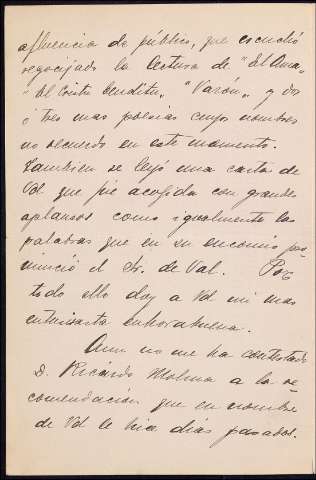 afluencia de público, que escuchó
regocijado la lectura de "El Ama",
"El Cristu benditu", "Varón", y dos
o tres mas poesías cuyos nombres
no recuerdo en este momento.
Tambien se leyó una carta de
Vd que fué acogida con grandes
aplausos como igualmente las
palabras que en su encomio pro
nunció el Sr. de Val. Por
todo ello doy a Vd mi mas
entusiasta enhorabuena.
Aun no me ha contestado
D. Ricardo Molina a la re
comendación que en nombre
de Vd le hice dias pasados.